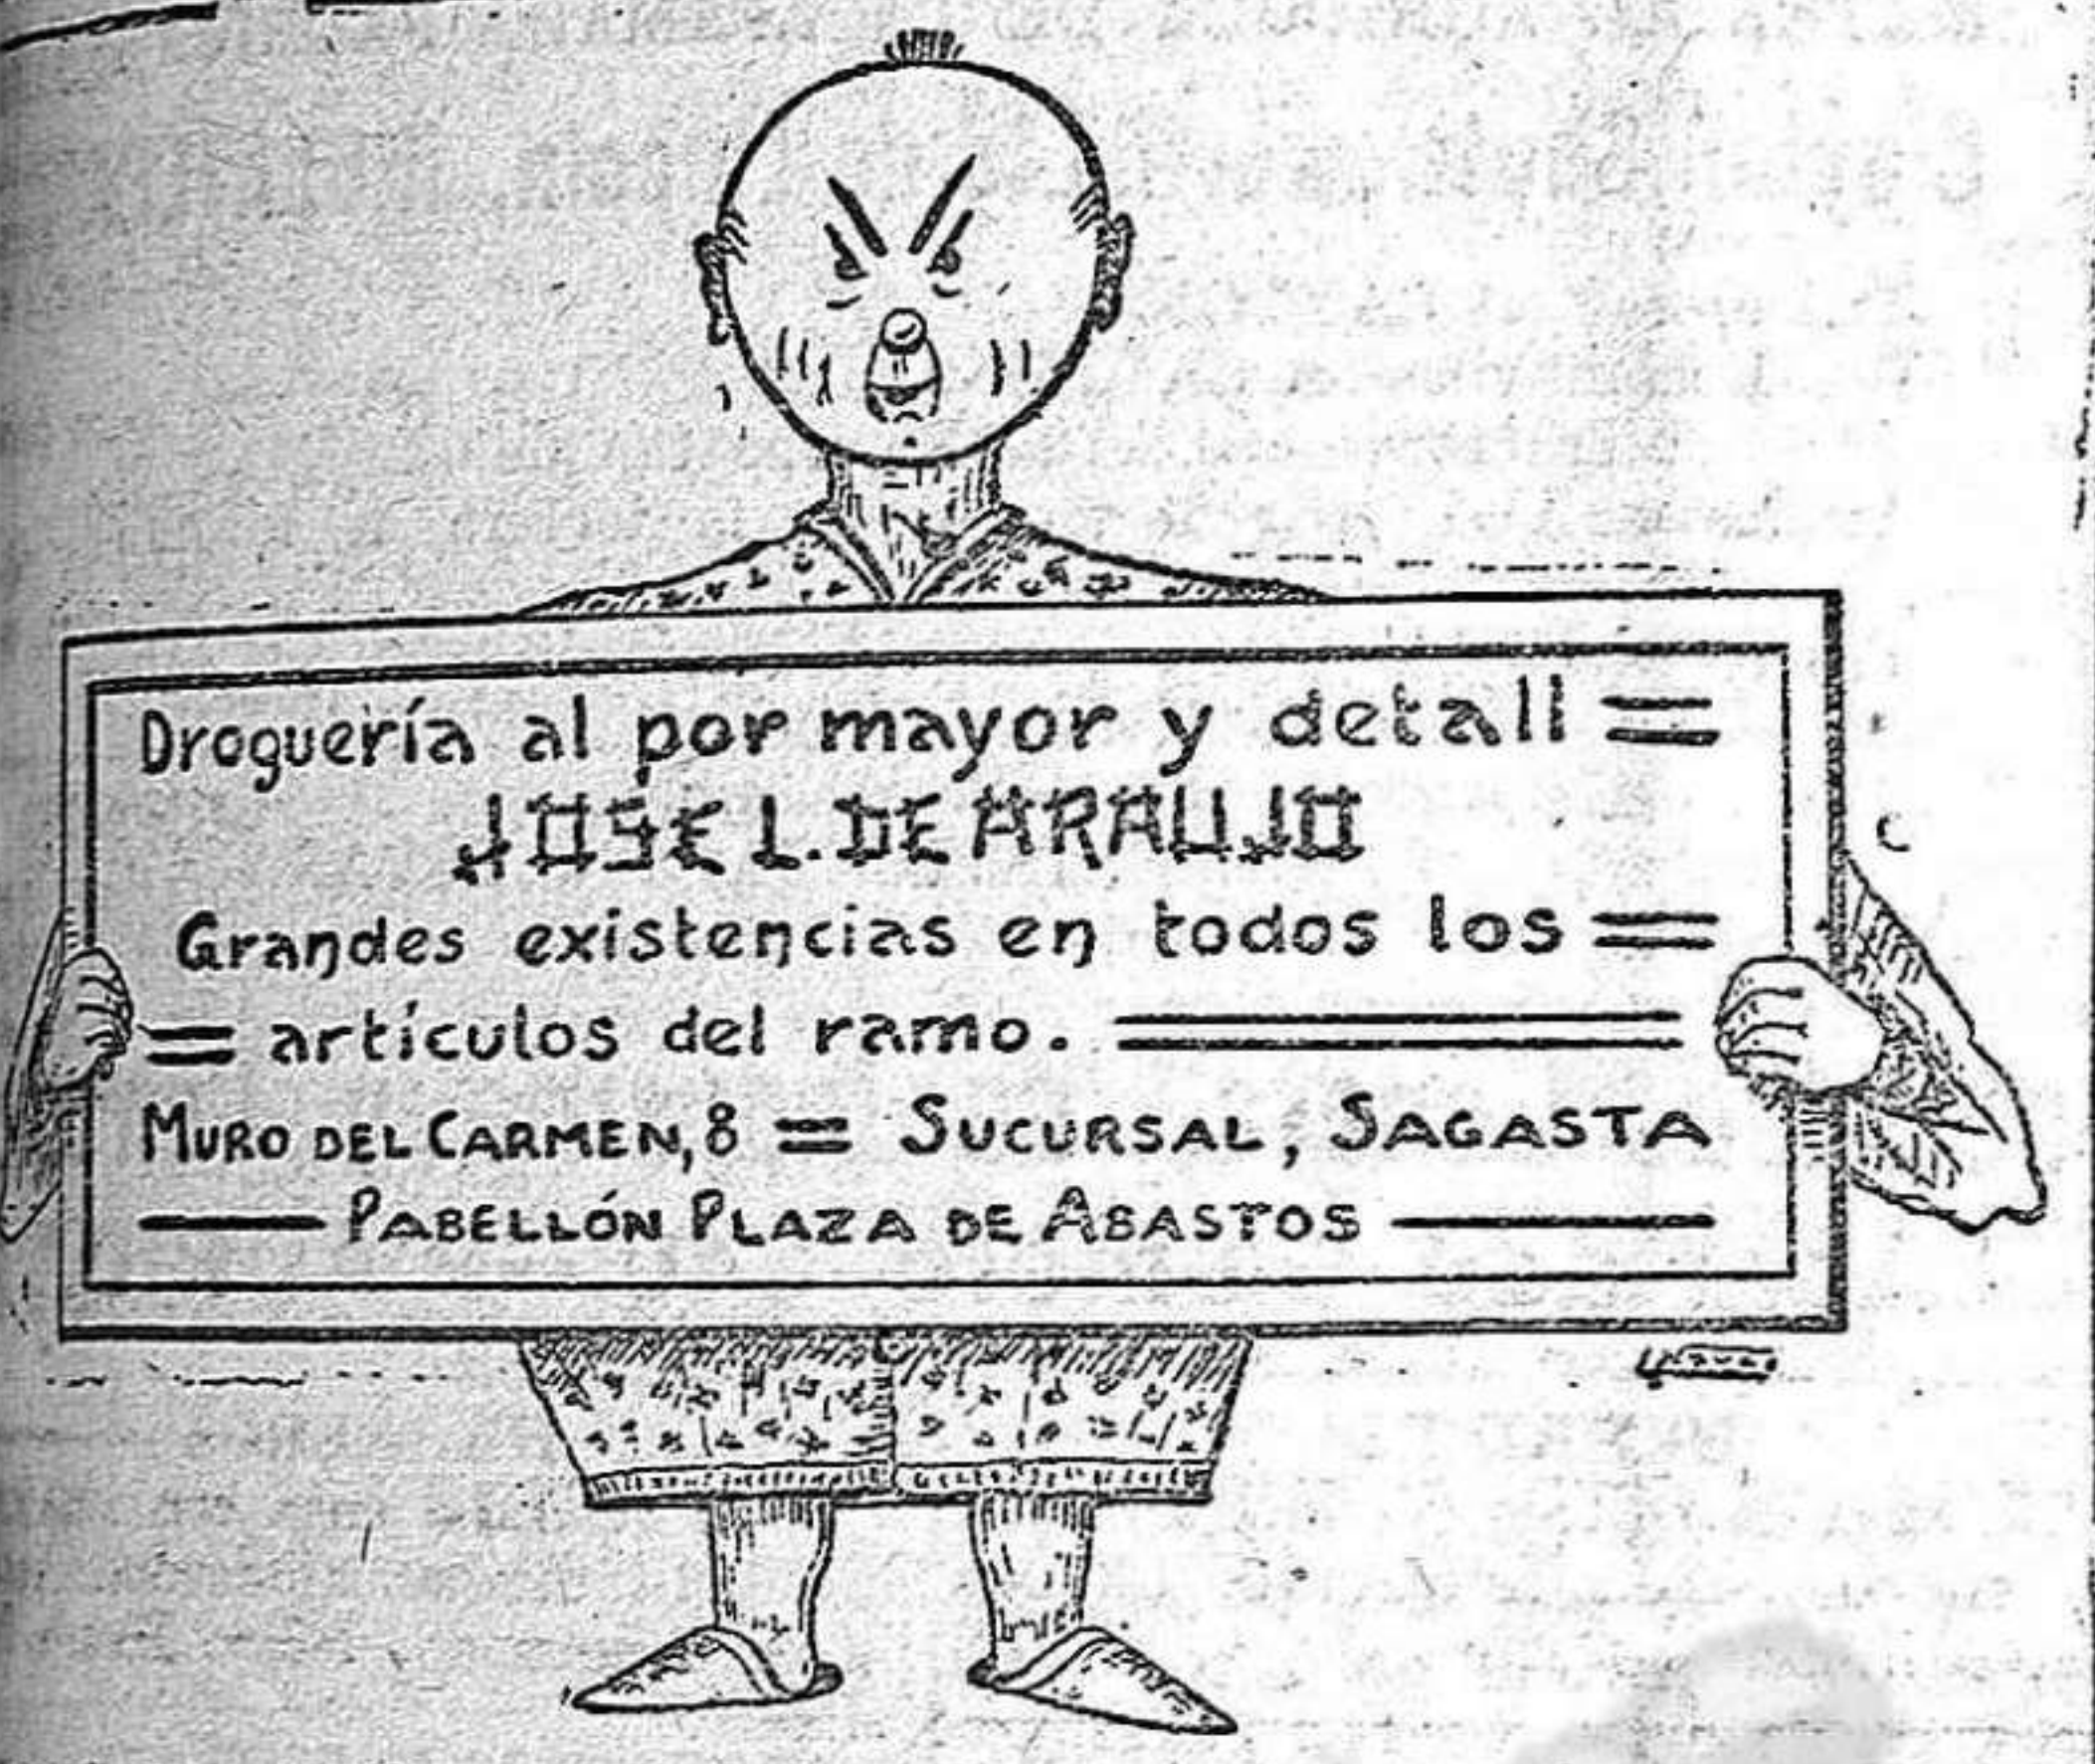 Droguería al por mayor y detall =
JOSE L. DE ARAUJO
Grandes existencias en todos los =
= artículos del ramo. =
MURO DEL CARMEN, 8 = SUCURSAL, SAGASTA
— PABELLÓN PLAZA DE ABASTOS —